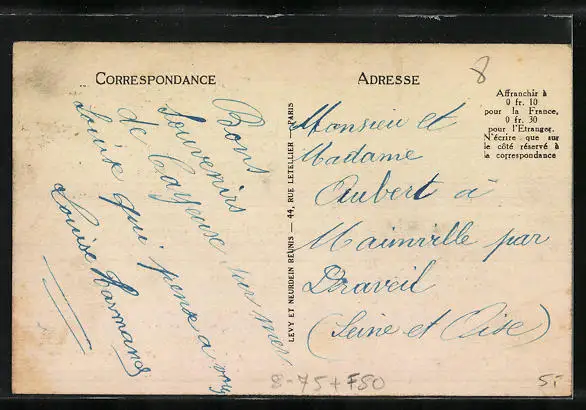 CORRESPONDANCE
Bons
souvenirs
de Cayeux sur mer
Louise qui pense a vous
Louise Harmand
LEVY ET NEURDEIN REUNIS — 44, RUE LETELLIER, PARIS
ADRESSE
8
Affranchir à
0 fr. 10
pour la France,
0 fr. 30
pour l'Etranger.
N'écrire que sur
le côté réservé à
la correspondance
Monsieu et
Madame
Aubert à
Mainville par
Draveil
(Seine et Oise)
8-75+FSO
5-